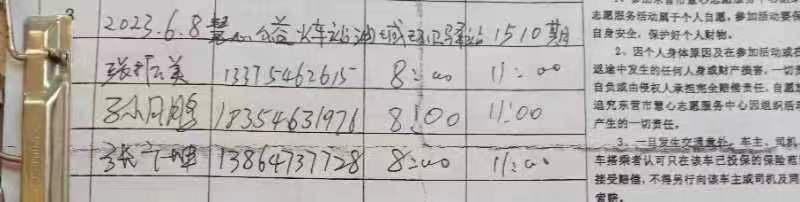 2023.6.8 慧心公益火车站油城 驿站1510期
张 美 13375462615 8:00 11:00
18354631976 8:00 11:00
张 13864737728 8:00 11:00
志愿服务活动属于个人自愿，参加活动要保
自身安全，保护好个人财物。
2、因个人身体原因及在参加活动或在
返途中发生的任何人身或财产损害，一切责
自负或由侵权人承担完全赔偿责任，自愿放
追究东营市慧心志愿服务中心因组织活动
产生的一切责任。
3、一旦发生交通意外，车主、司机
车搭乘者认可只在该车已投保的保险范围
接受赔偿，不得另行向该车主或司机及同
索赔。